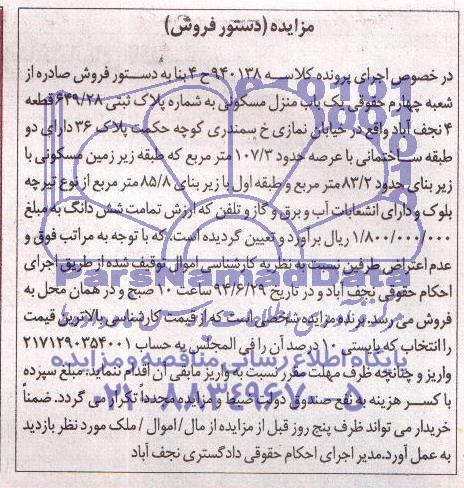 مزایده (دستور فروش)
در خصوص اجرای پرونده کلاسه ۹۴۰۱۳۸ ح ۴ بنا به دستور فروش صادره از
شعبه چهارم حقوقی یک باب منزل مسکونی به شماره پلاک ثبتی ۶۴۹/۲۸ قطعه
۴ نجف آباد واقع در خیابان نمازی خ سمندری کوچه حکمت پلاک ۳۶ دارای دو
طبقه ساختمانی با عرصه حدود ۱۰۷/۳ متر مربع که طبقه زیر زمین مسکونی با
زیر بنای حدود ۸۳/۲ متر مربع و طبقه اول با زیر بنای ۸۵/۸ متر مربع از نوع تیرچه
بلوک و دارای انشعابات آب و برق و گاز و تلفن که ارزش تمامت شش دانگ به مبلغ
۱/۸۰۰/۰۰۰/۰۰۰ ریال برآورد و تعیین گردیده است. که با توجه به مراتب فوق و
عدم اعتراض طرفین نسبت به نظریه کارشناسی اموال توقیف شده از طریق اجرای
احکام حقوقی نجف آباد و در تاریخ ۹۴/۶/۲۹ ساعت ۱۰ صبح و در همان محل به
فروش می رسد. برنده مزایده شخصی است که از قیمت کارشناسی بالاترین قیمت
را انتخاب که بایستی ۱۰ درصد آن را فی المجلس به حساب ۲۱۷۱۲۹۰۳۵۴۰۰۱
واریز و چنانچه ظرف مهلت مقرر نسبت به واریز مابقی آن اقدام ننماید. مبلغ سپرده
با کسر هزینه به نفع صندوق دولت ضبط و مزایده مجدداً تکرار می گردد. ضمناً
خریدار می تواند ظرف پنج روز قبل از مزایده از مال / اموال / ملک مورد نظر بازدید
به عمل آورد. مدیر اجرای احکام حقوقی دادگستری نجف آباد
ParsNamadData
پایگاه اطلاع رسانی مناقصه و مزایده
۰۲۱-۸۸۳۴۹۶۷۰-۵